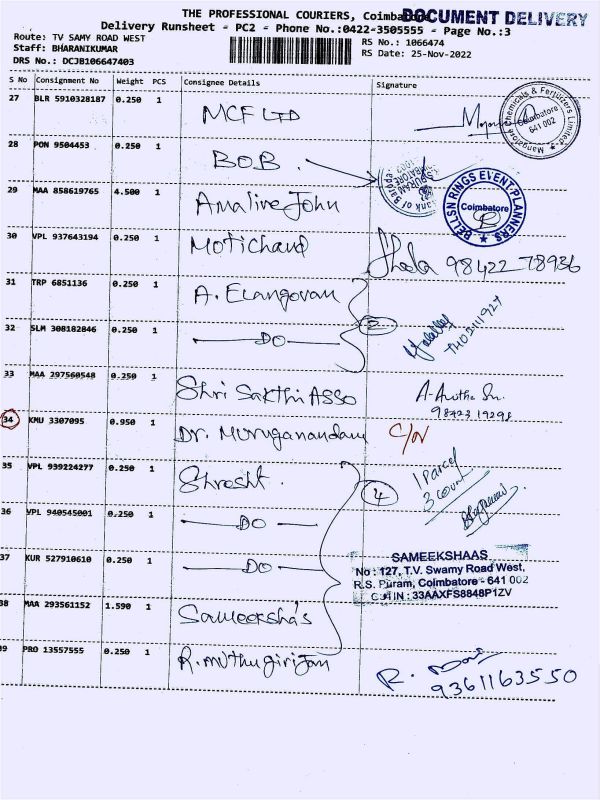 THE PROFESSIONAL COURIERS, Coimbatore
DOCUMENT DELIVERY
Delivery Runsheet - PC2 - Phone No.:0422-3505555 - Page No.:3
Route: TV SAMY ROAD WEST
RS No.: 1066474
Staff: BHARANIKUMAR
RS Date: 25-Nov-2022
DRS No.: DCJB106647403
S No Consignment No Weight PCS Consignee Details Signature
27 BLR 5910328187 0.250 1 MCF LTD
Mangalore Chemicals & Fertilizers Limited
Coimbatore
641 002
28 PON 9504453 0.250 1 BOB.
Bank of Baroda
29 MAA 858619765 4.500 1 Amaline John
BELLSN RINGS EVENT PLANNERS
Coimbatore
30 VPL 937643194 0.250 1 Motichand
Shela 98422 78936
31 TRP 6851136 0.250 1 A. Elangovan
2
TH03111927
32 SLM 308182846 0.250 1 DO
33 MAA 297560548 0.250 1 Shri Sakthi Asso
98423 19298
34 KMU 3307095 0.950 1 Dr. Muruganandam C/N
35 VPL 939224277 0.250 1 Shresht.
4
1 Parcel
3 Cover
36 VPL 940545001 0.250 1 DO
37 KUR 527910610 0.250 1 DO
SAMEEKSHAAS
No : 127, T.V. Swamy Road West,
R.S. Puram, Coimbatore - 641 002
GSTIN : 33AAXFS8848P1ZV
38 MAA 293561152 1.590 1 Sameeksha's
39 PRO 13557555 0.250 1 R. Muthugirijan
R.
9361163550